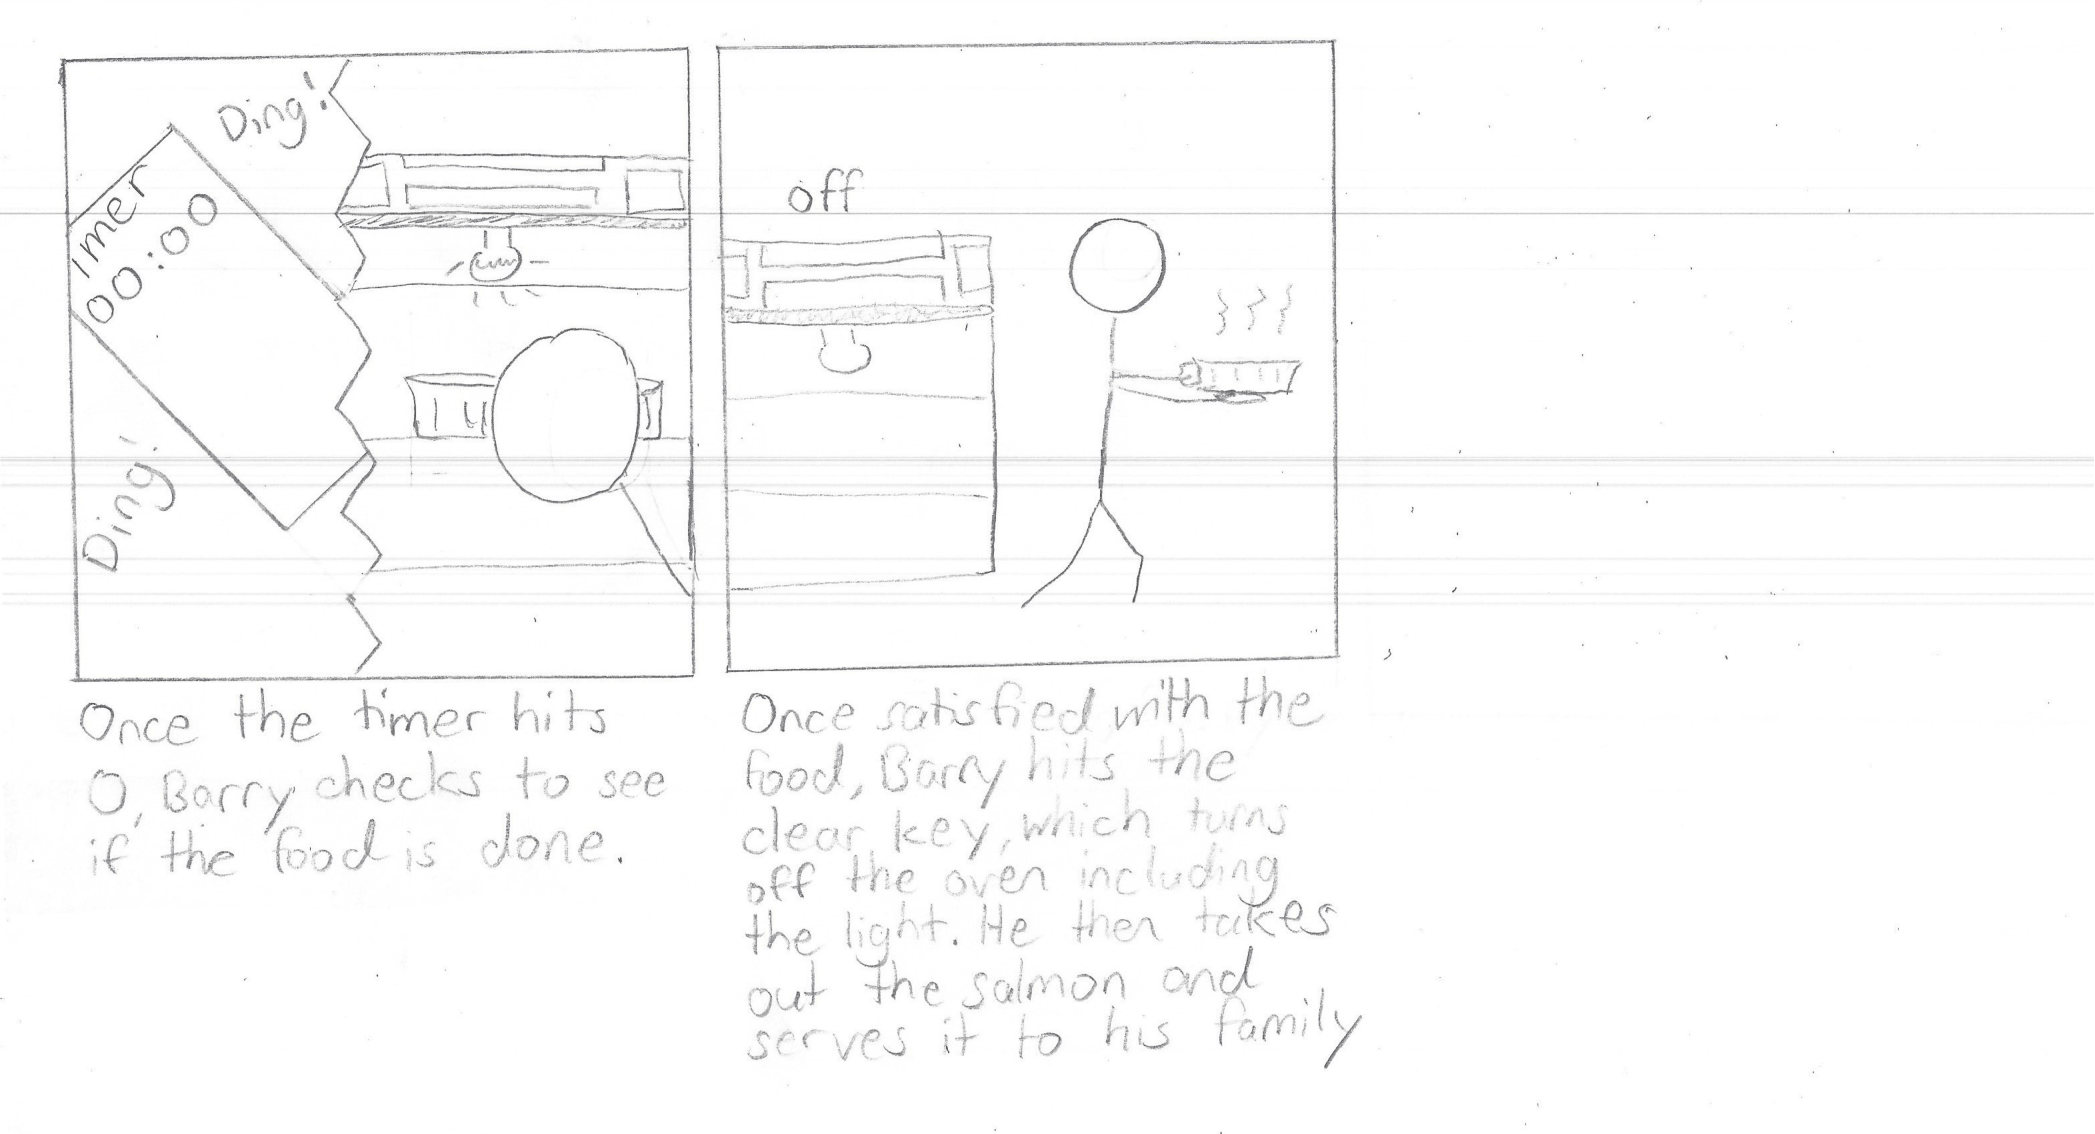 Ding!
imer
00:00
Ding!
Once the timer hits
0, Barry checks to see
if the food is done.
off
Once satisfied with the
food, Barry hits the
clear key, which turns
off the oven including
the light. He then takes
out the salmon and
serves it to his family